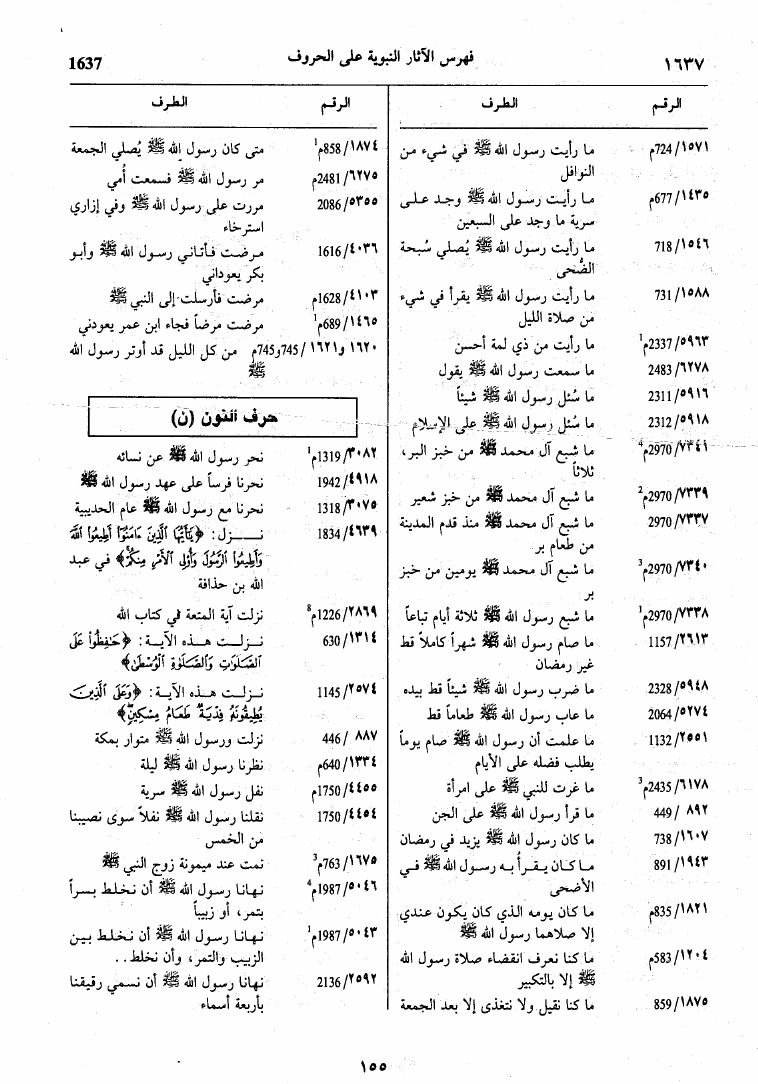 ١٦٣٧ فهرس الآثار النبوية على الحروف 1637
الرقم الطرف
١٥٧١/724م ما رأيت رسول الله ﷺ في شيء من
النوافل
١٤٣٥/677م ما رأيت رسول الله ﷺ وجد على
سرية ما وجد على السبعين
١٥٤٦/718 ما رأيت رسول الله ﷺ يُصلي سُبحة
الضُّحى
١٥٨٨/731 ما رأيت رسول الله ﷺ يقرأ في شيء
من صلاة الليل
٥٩٦٣/2337م¹ ما رأيت من ذي لمة أحسن
٦٢٧٨/2483 ما سمعت رسول الله ﷺ يقول
٥٩١٦/2311 ما سُئل رسول الله ﷺ شيئاً
٥٩١٨/2312 ما سُئل رسول الله ﷺ على الإسلام
٧٣٤١/2970م⁴ ما شبع آل محمد ﷺ من خبز البر،
ثلاثاً
٧٣٣٩/2970م² ما شبع آل محمد ﷺ من خبز شعير
٧٣٣٧/2970 ما شبع آل محمد ﷺ منذ قدم المدينة
من طعام بر
٧٣٤٠/2970م³ ما شبع آل محمد ﷺ يومين من خبز
بر
٧٣٣٨/2970م¹ ما شبع رسول الله ﷺ ثلاثة أيام تباعاً
٢٦١٣/1157 ما صام رسول الله ﷺ شهراً كاملاً قط
غير رمضان
٥٩٤٨/2328 ما ضرب رسول الله ﷺ شيئاً قط بيده
٥٢٧٤/2064 ما عاب رسول الله ﷺ طعاماً قط
٢٥٥١/1132 ما علمت أن رسول الله ﷺ صام يوماً
يطلب فضله على الأيام
٦١٧٨/2435م³ ما غرت للنبي ﷺ على امرأة
٨٩٢/ 449 ما قرأ رسول الله ﷺ على الجن
١٦٠٧/738 ما كان رسول الله ﷺ يزيد في رمضان
١٩٤٣/891 ما كان يقرأ به رسول الله ﷺ في
الأضحى
١٨٢١/835م ما كان يومه الذي كان يكون عندي
إلا صلاهما رسول الله ﷺ
١٢٠٤/583م ما كنا نعرف انقضاء صلاة رسول الله
ﷺ إلا بالتكبير
١٨٧٥/859 ما كنا نقيل ولا نتغذى إلا بعد الجمعة
الرقم الطرف
١٨٧٤/858م¹ متى كان رسول الله ﷺ يُصلي الجمعة
٦٢٧٥/2481م مر رسول الله ﷺ فسمعت أمي
٥٣٥٥/2086 مررت على رسول الله ﷺ وفي إزاري
استرخاء
٤٠٣٦/1616 مرضت فأتاني رسول الله ﷺ وأبو
بكر يعوداني
٤١٠٣/1628م مرضت فأرسلت إلى النبي ﷺ
١٤٦٥/689م¹ مرضت مرضاً فجاء ابن عمر يعودني
١٦٢٠ و١٦٢١/745و745م من كل الليل قد أوتر رسول الله
ﷺ
حرف النون (ن)
٣٠٨٢/1319م¹ نحر رسول الله ﷺ عن نسائه
٤٩١٨/1942 نحرنا فرساً على عهد رسول الله ﷺ
٣٠٧٥/1318 نحرنا مع رسول الله ﷺ عام الحديبية
٤٦٣٩/1834 نزل: ﴿يَٰٓأَيُّهَا ٱلَّذِينَ ءَامَنُوٓا۟ أَطِيعُوا۟ ٱللَّهَ
وَأَطِيعُوا۟ ٱلرَّسُولَ وَأُو۟لِى ٱلْأَمْرِ مِنكُمْ﴾ في عبد
الله بن حذافة
٢٨٦٩/1226م⁸ نزلت آية المتعة في كتاب الله
١٣١٤/630 نزلت هذه الآية: ﴿حَٰفِظُوا۟ عَلَى
ٱلصَّلَوَٰتِ وَٱلصَّلَوٰةِ ٱلْوُسْطَىٰ﴾
٢٥٧٤/1145 نزلت هذه الآية: ﴿وَعَلَى ٱلَّذِينَ
يُطِيقُونَهُۥ فِدْيَةٌ طَعَامُ مِسْكِينٍ﴾
٨٨٧/ 446 نزلت ورسول الله ﷺ متوار بمكة
١٣٣٤/640م نظرنا رسول الله ﷺ ليلة
٤٤٥٥/1750م نفل رسول الله ﷺ سرية
٤٤٥٤/1750 نفلنا رسول الله ﷺ نفلاً سوى نصيبنا
من الخمس
١٦٧٥/763م³ نمت عند ميمونة زوج النبي ﷺ
٥٠٤٦/1987م⁴ نهانا رسول الله ﷺ أن نخلط بسراً
بتمر، أو زبيباً
٥٠٤٣/1987م¹ نهانا رسول الله ﷺ أن نخلط بين
الزبيب والتمر، وأن نخلط..
٢٥٩٢/2136 نهانا رسول الله ﷺ أن نسمي رقيقنا
بأربعة أسماء
١٥٥